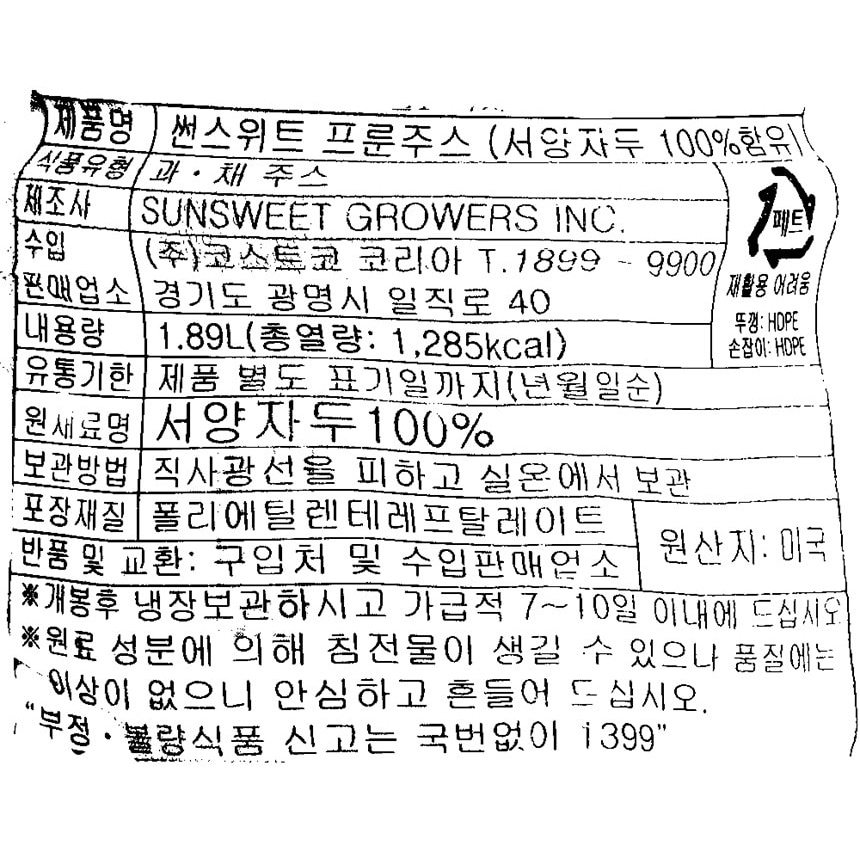 제품명 썬스위트 프룬주스 (서양자두 100%함유)
식품유형 과·채 주스
제조사 SUNSWEET GROWERS INC.
수입 (주)코스트코 코리아 T.1899 - 9900
판매업소 경기도 광명시 일직로 40
페트
재활용 어려움
뚜껑: HDPE
손잡이: HDPE
내용량 1.89L(총열량: 1,285kcal)
유통기한 제품 별도 표기일까지(년월일순)
원재료명 서양자두100%
보관방법 직사광선을 피하고 실온에서 보관
포장재질 폴리에틸렌테레프탈레이트
원산지: 미국
반품 및 교환: 구입처 및 수입판매업소
※개봉후 냉장보관하시고 가급적 7~10일 이내에 드십시오
※원료 성분에 의해 침전물이 생길 수 있으나 품질에는
이상이 없으니 안심하고 흔들어 드십시오.
"부정·불량식품 신고는 국번없이 1399"